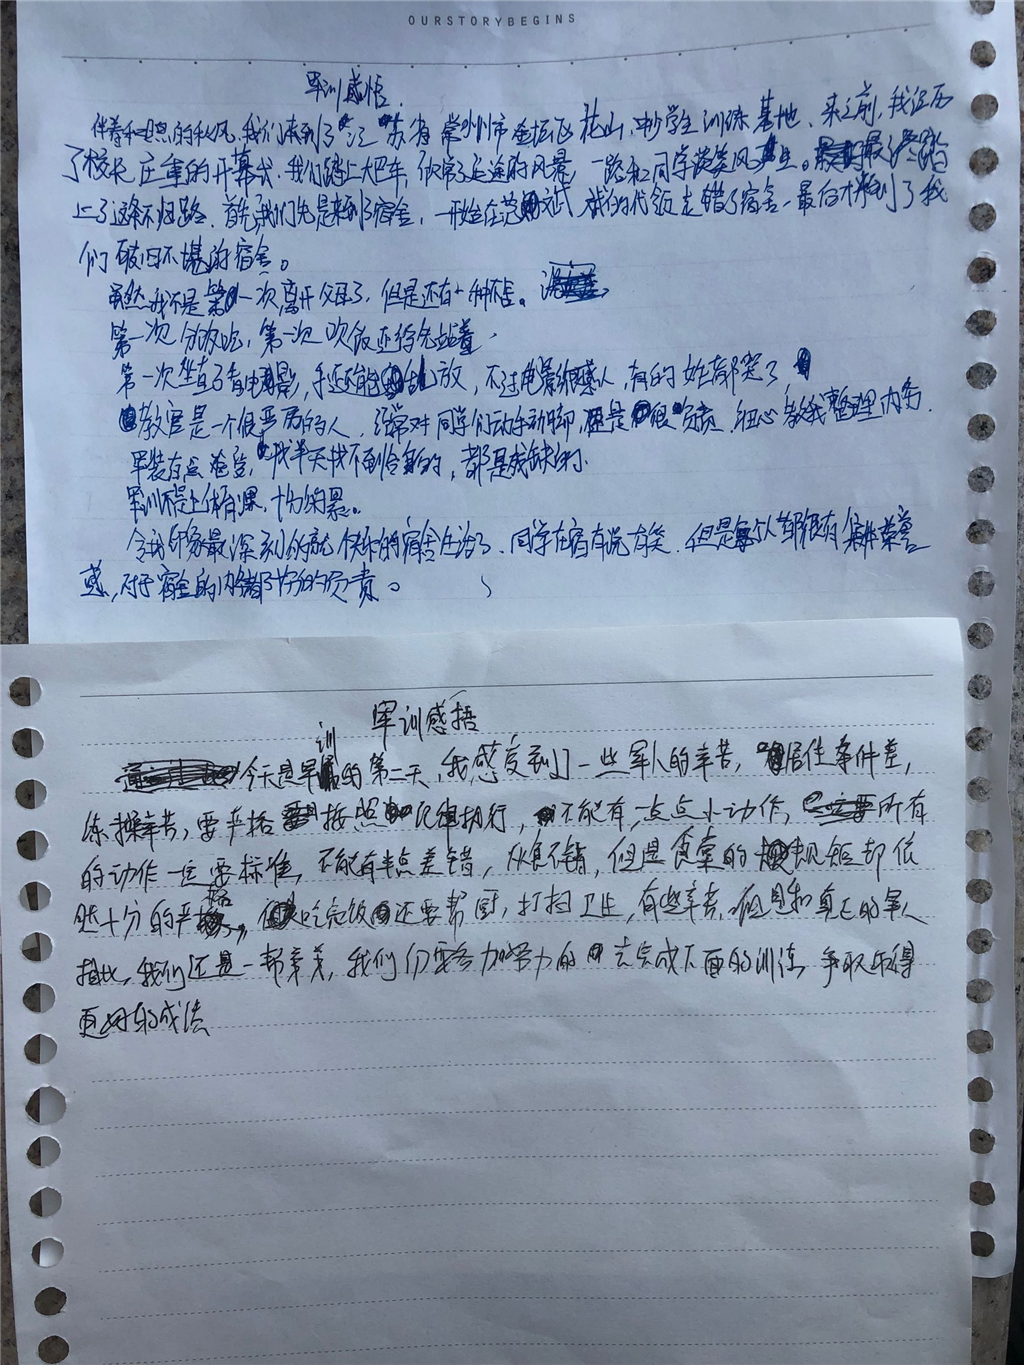 OURSTORYBEGINS
军训感悟
伴着和煦的秋风,我们来到了江苏省常州市金坛区花山中小学生训练基地、来之前,我经历
了校长庄重的开幕式.我们踏上大巴车,一路和同学谈笑风生。最终踏
上了这条不归路.首先,我们先是来到了宿舍,一开始在范文武的代领走错了宿舍,最后才来到了我
们破旧不堪的宿舍。
虽然我不是第一次离开父母了,但是还有一种不舍。
第一次分饭吃,第一次吃饭还得先站着,
第一次坐直了看电影,手还不能乱放,不过电影很感人,有的女生都哭了,
教官是一个很严厉的人,经常对同学们动手动脚,但是很负责,细心教我整理内务.
军装有点,找半天找不到合身的,都是残缺的.
军训不是上体育课,十分的累。
令我印象最深刻的就快乐的宿舍生活了.同学在宿有说有笑.但是每个人都很有集体荣誉
感,对于宿舍的内务都十分的负责。
军训感捂
训
今天是军的第二天,我感受到了一些军人的辛苦,居住条件差,
练操辛苦,要严格按照纪律执行,不能有一点点小动作,所有
的动作一定要标准,不能有半点差错,伙食不错,但是食堂的规矩却依
然十分的严格,吃完饭还要帮厨,打扫卫生,有些辛苦,但是和真正的军人
相比,我们还是一帮,我们仍要努力的去完成下面的训练,争取取得
更好的成绩